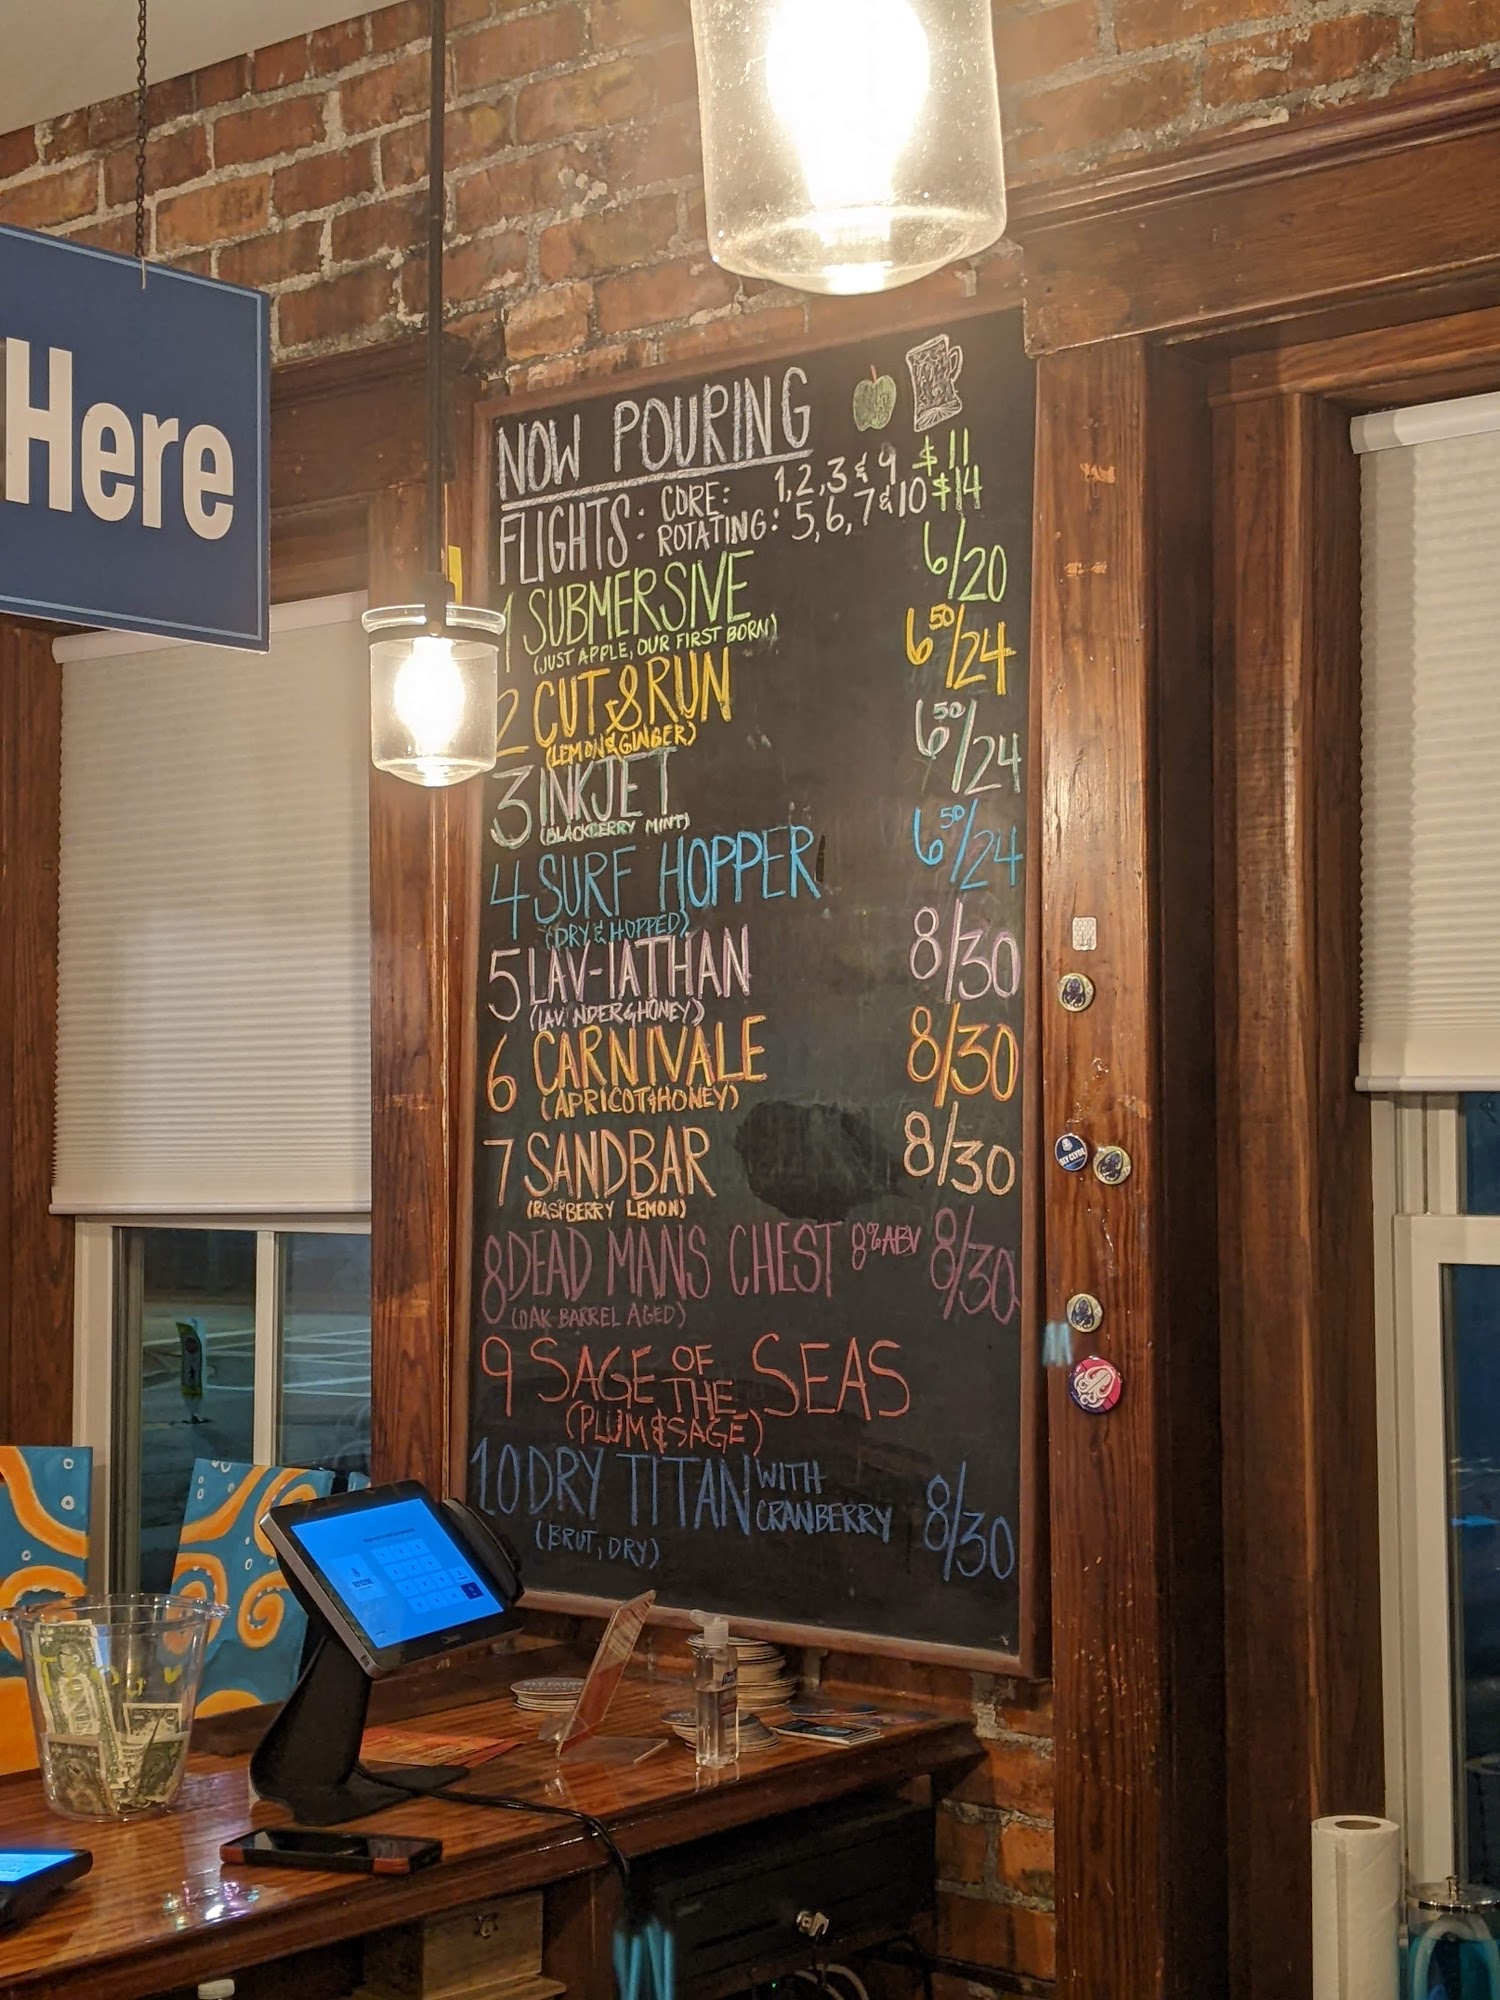 Here
NOW POURING
FLIGHTS: CORE: 1, 2, 3 & 9 $11
ROTATING: 5, 6, 7 & 10 $14
1 SUBMERSIVE 6/20
(JUST APPLE, OUR FIRST BORN)
2 CUT & RUN 6⁵⁰/24
(LEMON & GINGER)
3 INKJET 6⁵⁰/24
(BLACKBERRY MINT)
4 SURF HOPPER 6⁵⁰/24
(DRY & HOPPED)
5 LAV-IATHAN 8/30
(LAV NDER & HONEY)
6 CARNIVALE 8/30
(APRICOT & HONEY)
7 SANDBAR 8/30
(RASPBERRY LEMON)
8 DEAD MANS CHEST 8% ABV 8/30
(OAK BARREL AGED)
9 SAGE OF THE SEAS
(PLUM & SAGE)
10 DRY TITAN WITH CRANBERRY 8/30
(BRUT, DRY)